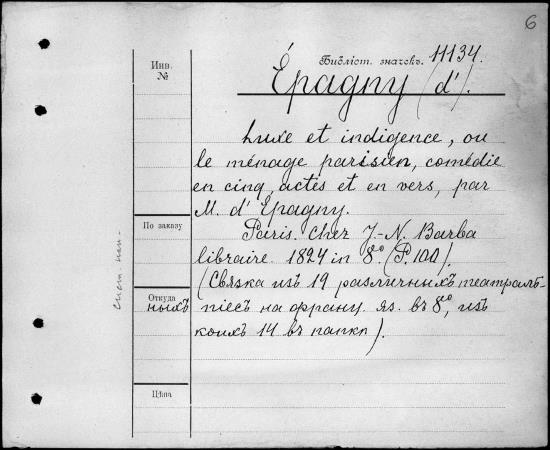 6
Библіот. значекъ. 11134.
Инв. №
Épagny (d').
Luxe et indigence, ou
le ménage parisien, comédie
en cinq actes et en vers, par
M. d'Epagny.
По заказу
Paris. Chez J.-N. Barba
libraire. 1824 in 8º. (P. 100).
(Связка изъ 19 различныхъ театраль-
Откуда
ныхъ пiесъ на франц. яз. въ 8º, изъ
коихъ 14 въ папкѣ).
Цѣна